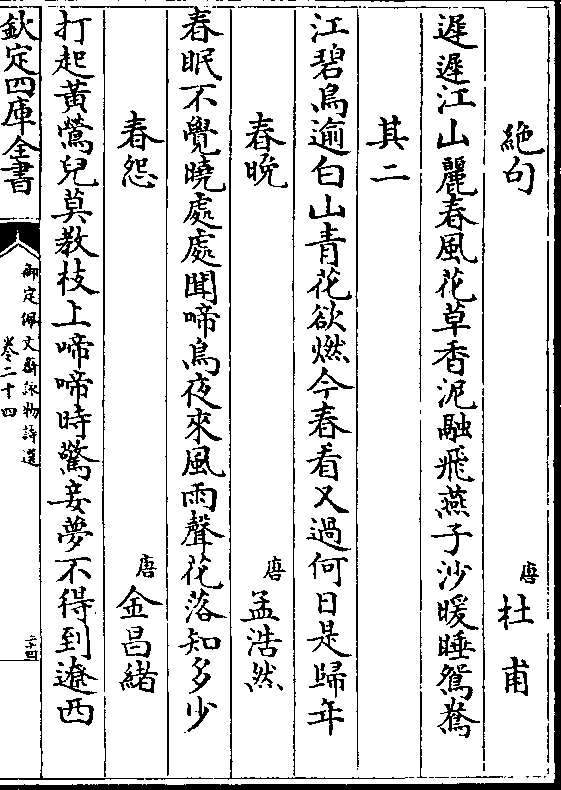 絶句 唐 杜甫
遲遲江山麗春風花草香泥融飛燕子沙暖睡鴛鴦
其二
江碧鳥逾白山青花欲燃今春看又過何日是歸年
春晩 唐 孟浩然
春眠不覺曉處處聞啼鳥夜來風雨聲花落知多少
春怨 唐 金昌緒
打起黃鶯兒莫教枝上啼啼時驚妾夢不得到遼西
欽定四庫全書
御定佩文齋詠物詩選
卷二十四
二十四